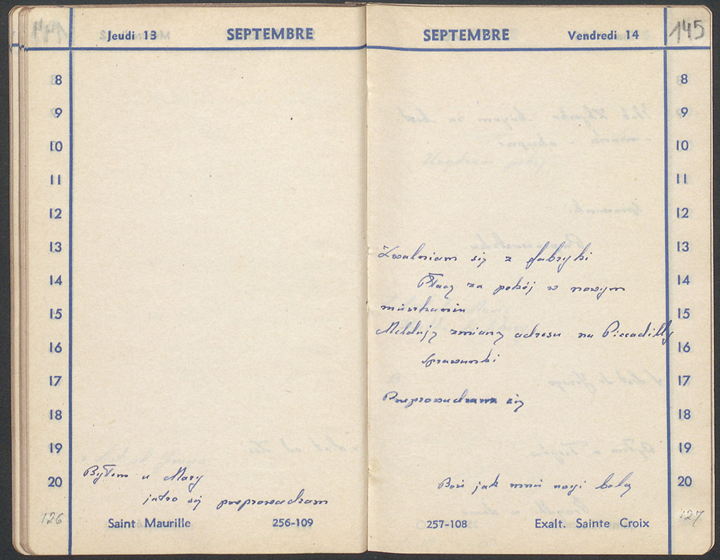 144
Jeudi 13
SEPTEMBRE
8
9
10
11
12
13
14
15
16
17
18
19
20
Byłem u Mary
jutro się przeprowadzam
126
Saint Maurille
256-109
SEPTEMBRE
Vendredi 14
145
8
9
10
11
12
13
14
15
16
17
18
19
20
Zwalniam się z fabryki
Płacę za pokój w nowym
mieszkaniu
Melduję zmianę adresu na Piccadilly
Sprawunki
Przeprowadzam się
Boże jak mnie nogi bolą
257-108
Exalt. Sainte Croix
127